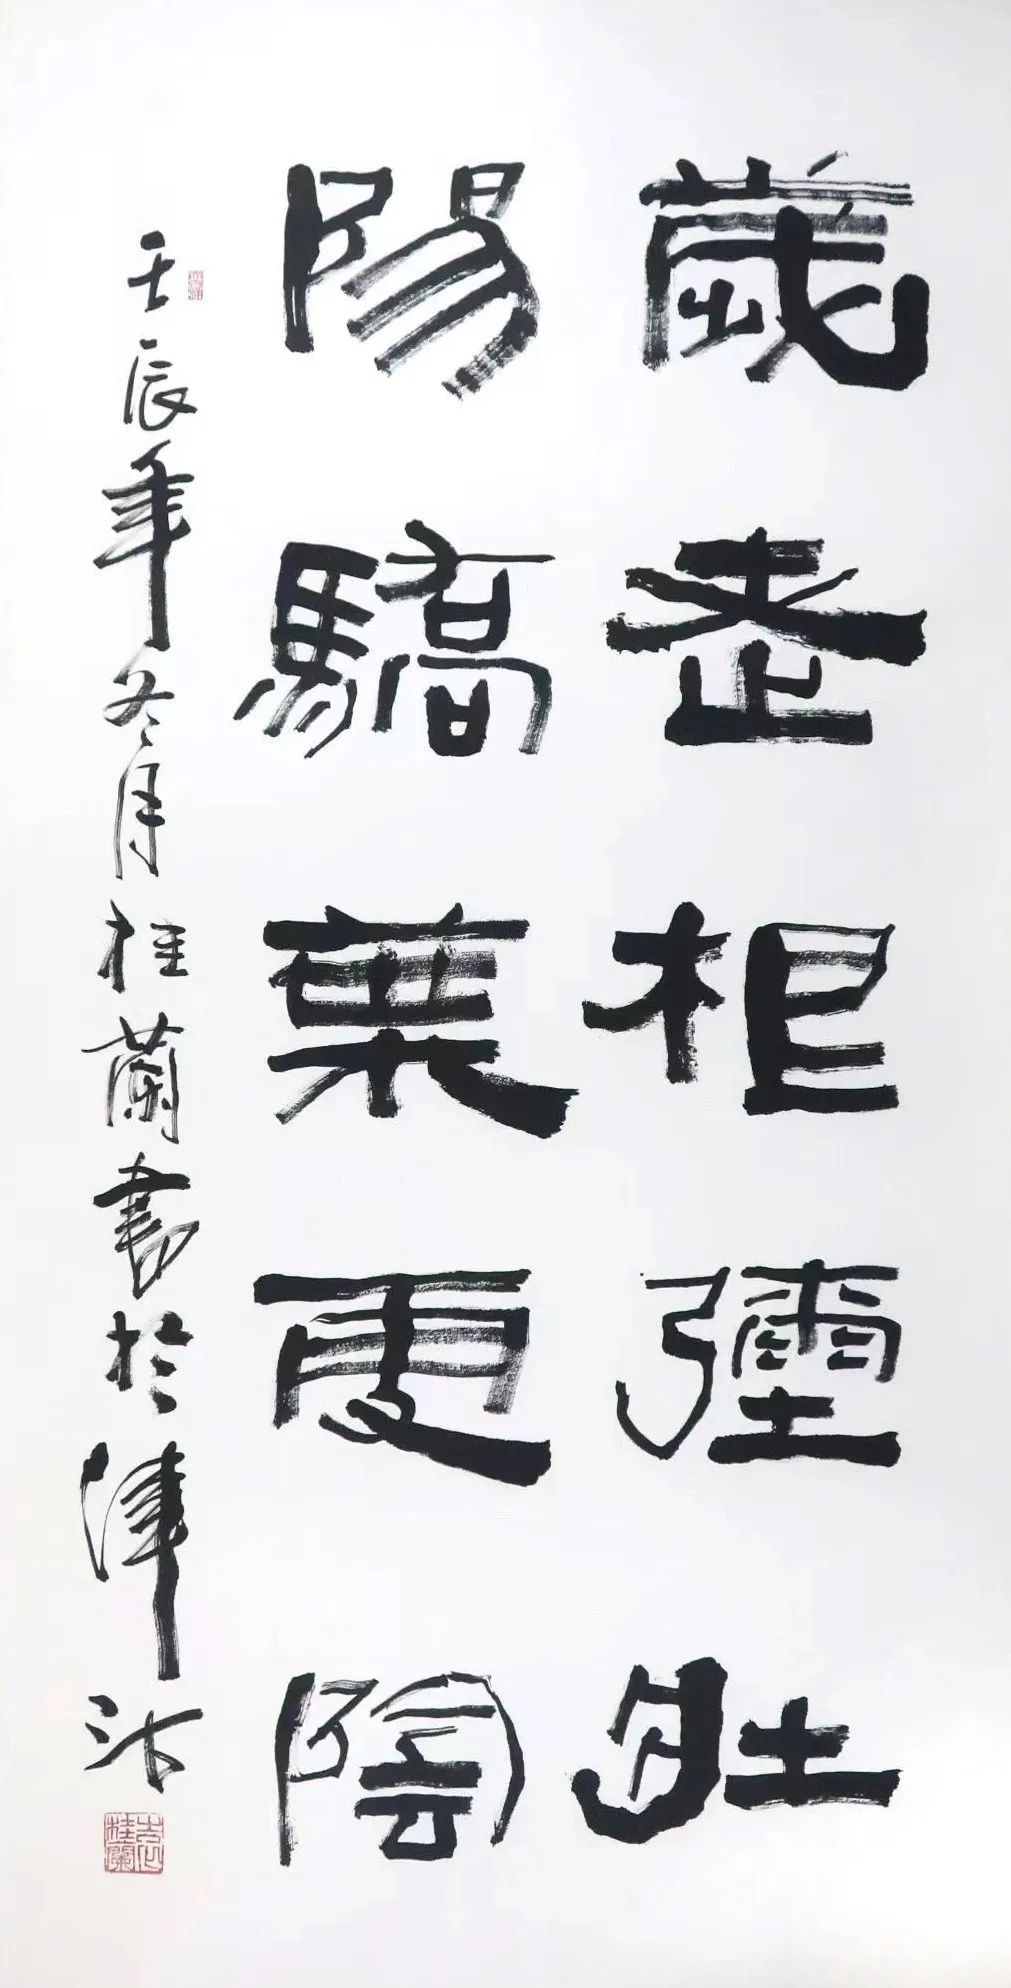 歲老根彌壯
陽驕葉更陰
壬辰年冬月桂蘭書於津沽
袁桂蘭